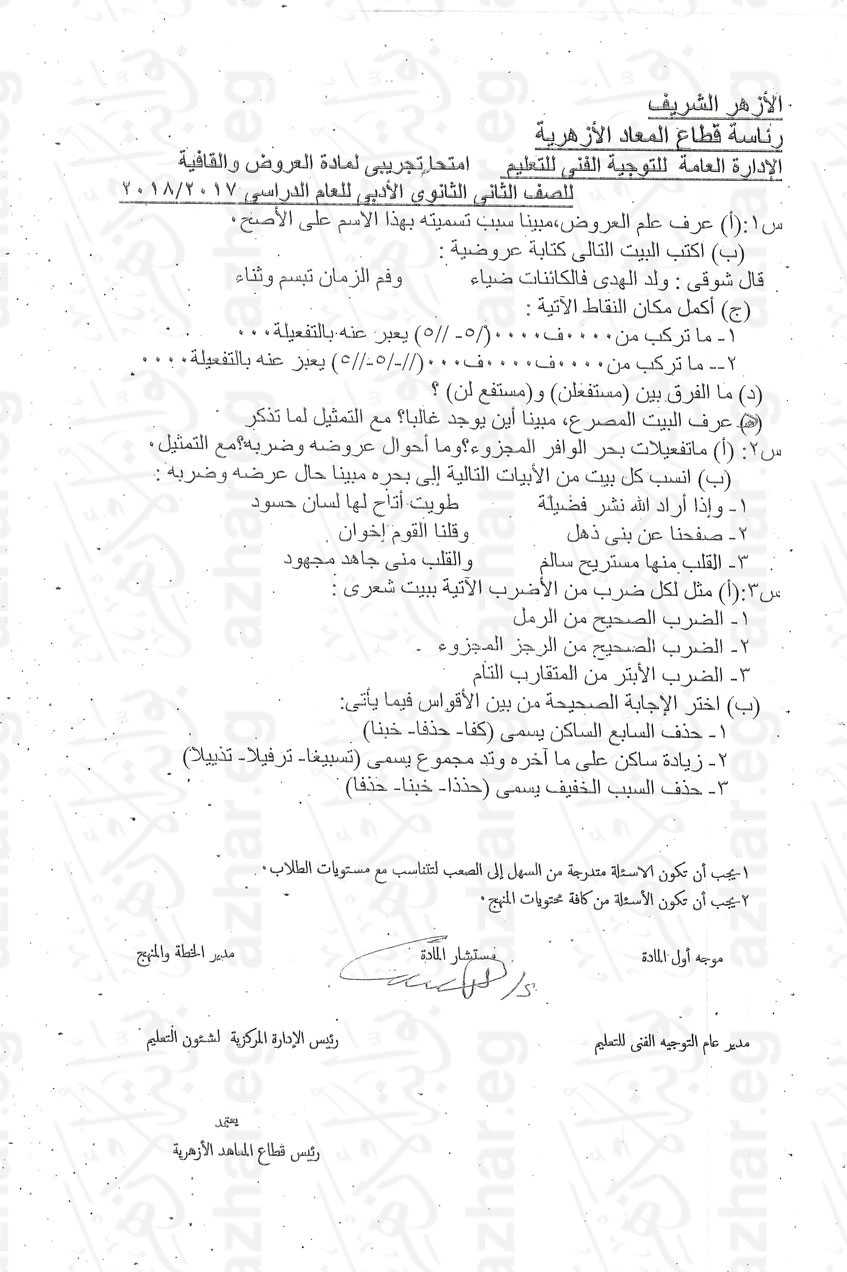 الأزهر الشريف
رئاسة قطاع المعاد الأزهرية
الإدارة العامة للتوجية الفنى للتعليم امتحان تجريبى لمادة العروض والقافية
للصف الثانى الثانوي الأدبي للعام الدراسي ٢٠١٨/٢٠١٧
س١:(أ) عرف علم العروض،مبينا سبب تسميته بهذا الاسم على الأصح.
(ب) اكتب البيت التالى كتابة عروضية :
قال شوقى : ولد الهدى فالكائنات ضياء وفم الزمان تبسم وثناء
(ج) أكمل مكان النقاط الآتية :
١- ما تركب من ....ف....(/٥- //٥) يعبر عنه بالتفعيلة...
٢-- ما تركب من ....ف....ف...(//-/٥-//٥) يعبر عنه بالتفعيلة....
(د) ما الفرق بين (مستفعلن) و(مستفع لن) ؟
(هـ) عرف البيت المصرع، مبينا أين يوجد غالبا؟ مع التمثيل لما تذكر
س٢: (أ) ماتفعيلات بحر الوافر المجزوء؟وما أحوال عروضه وضربه؟مع التمثيل.
(ب) انسب كل بيت من الأبيات التالية إلى بحره مبينا حال عرضه وضربه :
١- وإذا أراد الله نشر فضيلة طويت أتاح لها لسان حسود
٢- صفحنا عن بنى ذهل وقلنا القوم إخوان
٣- القلب منها مستريح سالم والقلب منى جاهد مجهود
س٣:(أ) مثل لكل ضرب من الأضرب الآتية ببيت شعرى :
١- الضرب الصحيح من الرمل
٢- الضرب الصحيح من الرجز المجزوء .
٣- الضرب الأبتر من المتقارب التام
(ب) اختر الإجابة الصحيحة من بين الأقواس فيما يأتى:
١- حذف السابع الساكن يسمى (كفا- حذفا- خبنا)
٢- زيادة ساكن على ما آخره وتد مجموع يسمى (تسبيغا- ترفيلا- تذييلا)
٣- حذف السبب الخفيف يسمى (حذذا- خبنا- حذفا)
١-يجب أن تكون الاسئلة متدرجة من السهل إلى الصعب لتتناسب مع مستويات الطلاب.
٢-يجب أن تكون الأسئلة من كافة محتويات المنهج.
موجه أول المادة مستشار المادة مدير الخطة والمنهج
مدير عام التوجيه الفنى للتعليم رئيس الإدارة المركزية لشئون التعليم
يعتمد
رئيس قطاع المعاهد الأزهرية
azhar.eg